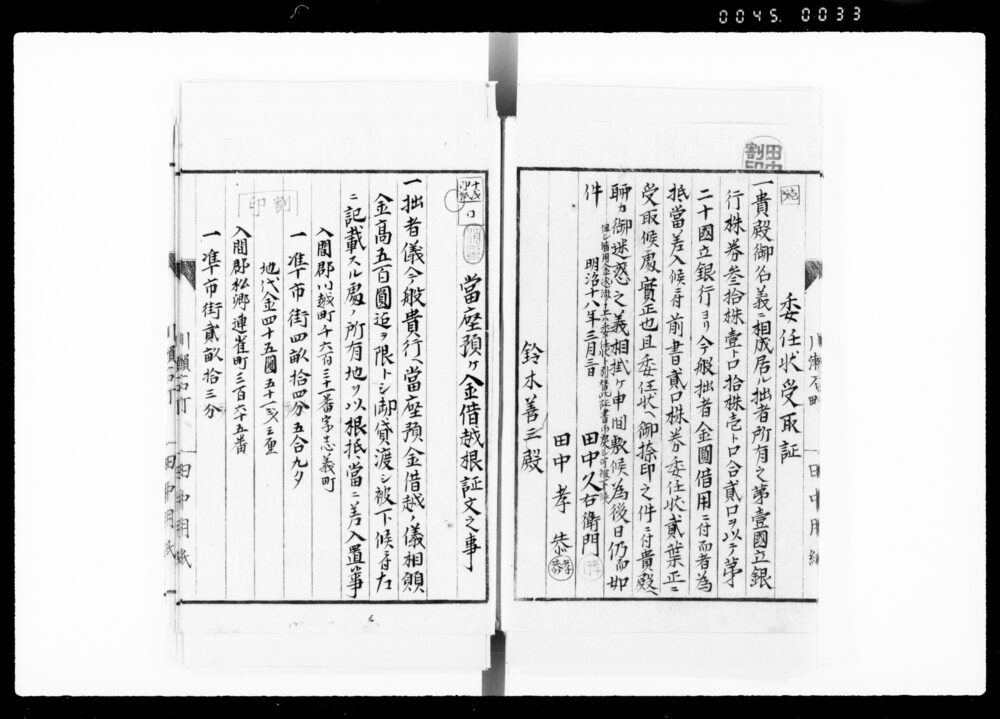 0045. 0033
田中
割印
委任状受取証
一貴殿御名義ニ相成居ル拙者所有之第壹國立銀
行株券叄拾株壹ト口拾株壱ト口合貳口ヲ以テ第
二十國立銀行ヨリ今般拙者金圓借用ニ付而者為
抵當差入候ニ付前書貳口株券委任状貳葉正ニ
受取候處實正也且委任状ヘ御捺印之件ニ付貴殿ヘ
聊カ御迷惑之義相掛ケ申間敷候為後日仍而如
件
明治十八年三月三日
田中久右衛門
田中孝恭
鈴木善三殿
川瀬石町
田中用紙
當座預ケ金借越根証文之事
一拙者儀今般貴行ヘ當座預金借越ノ儀相願
金高五百圓迄ヲ限トシ御貸渡シ被下候ニ付左
ニ記載スル處ノ所有地ヲ以根抵當ニ差入置事
入間郡川越町千六百三十一番字志義町
一準市街四畝拾四分五合九夕
地代金四十五圓五十一戋三厘
割印
入間郡松郷連雀町三百六十五番
一準市街貳畝拾三分
川瀬石町
田中用紙